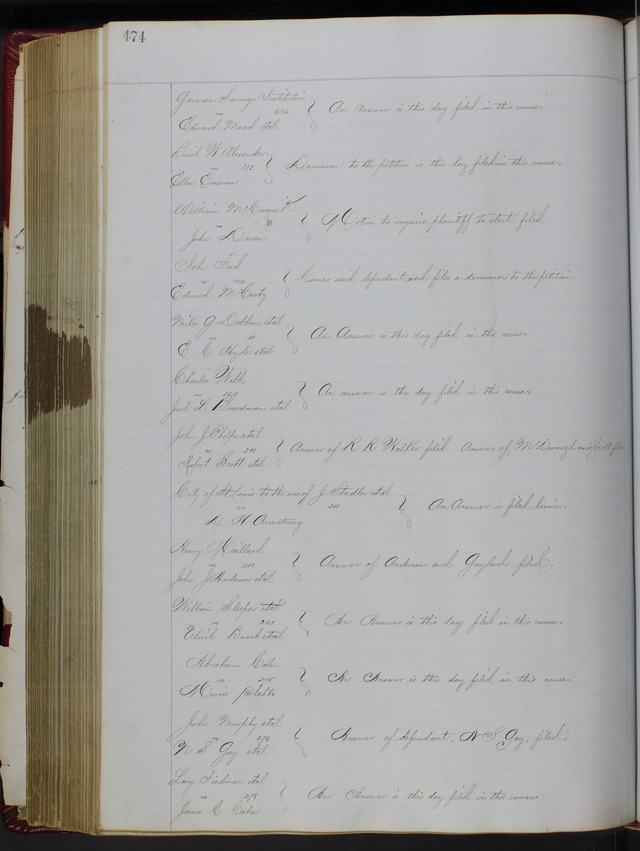 474
German Savings Institution
vs
Edward Mead et al } An Answer is this day filed in this cause.
Basil W Alexander
vs
Ellen Emerson } Demurrer to the petition is this day filed in this cause.
William McCormick
vs
John Doran } Motion to require plaintiff to elect filed
John Fink
vs
Edward McCarty } Comes said defendant and files a demurrer to the petition
Miles G Dobbins et al
vs
E C Hyde et al } An Answer is this day filed in this cause.
Charles Webb
vs
Joel L Boardman et al } An answer is this day filed in this cause
John J Phelps et al
vs 241
Robert Scott et al } Answer of R R Walker filed. Answer of McDonough and
City of St Louis to the use of J Stadler et al
vs
D H Armstrong } An Answer is filed herein.
Henry Maillard
vs
John J Anderson et al } Answer of Anderson and Gaylord filed.
William Sleeper et al
vs
Ulrich Busch et al } An Answer is this day filed in this cause.
Abraham Cahn
vs
Morris } An Answer is this day filed in this cause.
John Murphy et al
vs
N. S Gay et al } Answer of defendant, N S Gay, filed.
et al
vs 278
James G Cahn } An Answer is this day filed in this cause